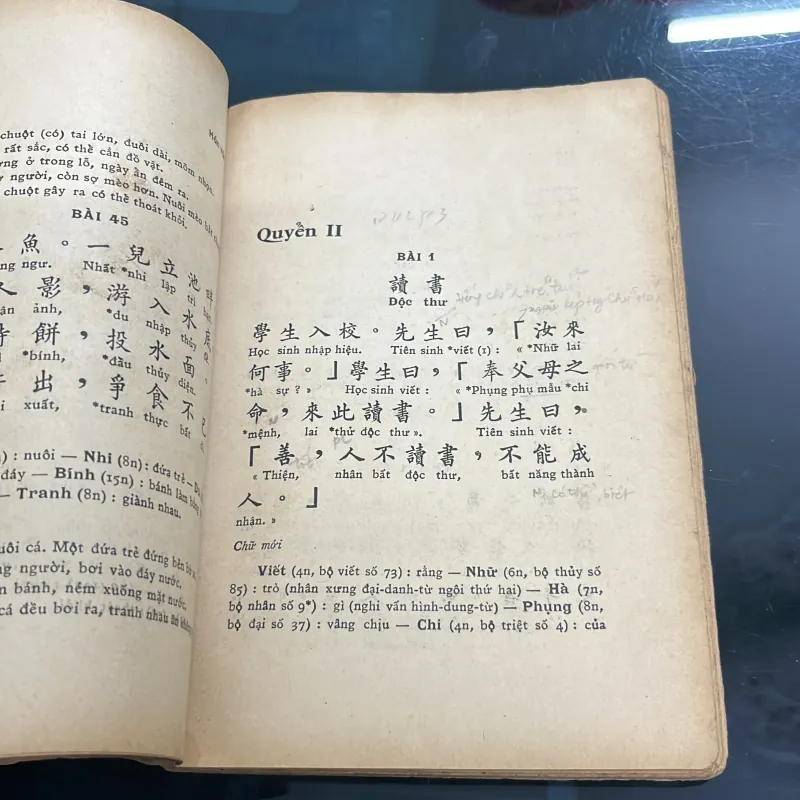 chuột (có) tai lớn, đuôi dài, mõm nhọn,
rất sắc, có thể cắn đồ vật.
ở trong lỗ, ngày ẩn đêm ra.
người, còn sợ mèo hơn. Nuôi mèo
chuột gây ra có thể thoát khỏi.
BÀI 45
魚。一兒立池畔
ngư. Nhất *nhi lập trì
影，游入水底
ảnh, *du nhập thủy
餅，投水面。
*bính, *đầu thủy diện.
出，爭食不已
xuất, *tranh thực bất
: nuôi — Nhi (8n) : đứa trẻ —
đáy — Bính (15n) : bánh làm
— Tranh (8n) : giành nhau.
cá. Một đứa trẻ đứng bên
người, bơi vào đáy nước,
bánh, ném xuống mặt nước,
cá đều bơi ra, tranh nhau ăn
Quyển II
BÀI 1
讀書
Độc thư
學生入校。先生曰，「汝來
Học sinh nhập hiệu. Tiên sinh *viết (1) : « *Nhữ lai
何事。」學生曰，「奉父母之
*hà sự ? » Học sinh viết : « *Phụng phụ mẫu *chi
命，來此讀書。」先生曰，
*mệnh, lai *thử độc thư ». Tiên sinh viết :
「善，人不讀書，不能成
« Thiện, nhân bất độc thư, bất năng thành
人。」
nhận. »
Chữ mới
Viết (4n, bộ viết số 73) : rằng — Nhữ (6n, bộ thủy số
85) : trò (nhân xưng đại-danh-từ ngôi thứ hai) — Hà (7n,
bộ nhân số 9*) : gì (nghi vấn hình-dung-từ) — Phụng (8n,
bộ đại số 37) : vâng chịu — Chi (4n, bộ triệt số 4) : của